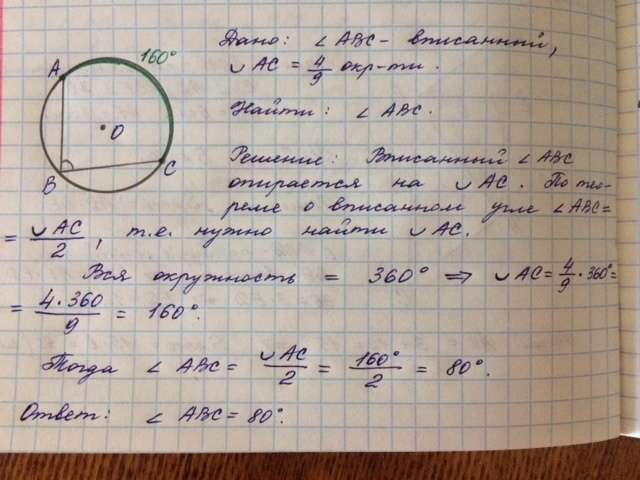 A
B
C
O
160°
Дано: ∠ABC - вписанный,
◡AC = 4/9 окр-ти.
Найти: ∠ABC.
Решение: Вписанный ∠ABC
опирается на ◡AC. По тео-
реме о вписанном угле ∠ABC =
= ◡AC/2, т.е. нужно найти ◡AC.
Вся окружность = 360° ⇒ ◡AC = 4/9 · 360° =
= 4·360/9 = 160°.
Тогда ∠ABC = ◡AC/2 = 160°/2 = 80°.
Ответ: ∠ABC = 80°.